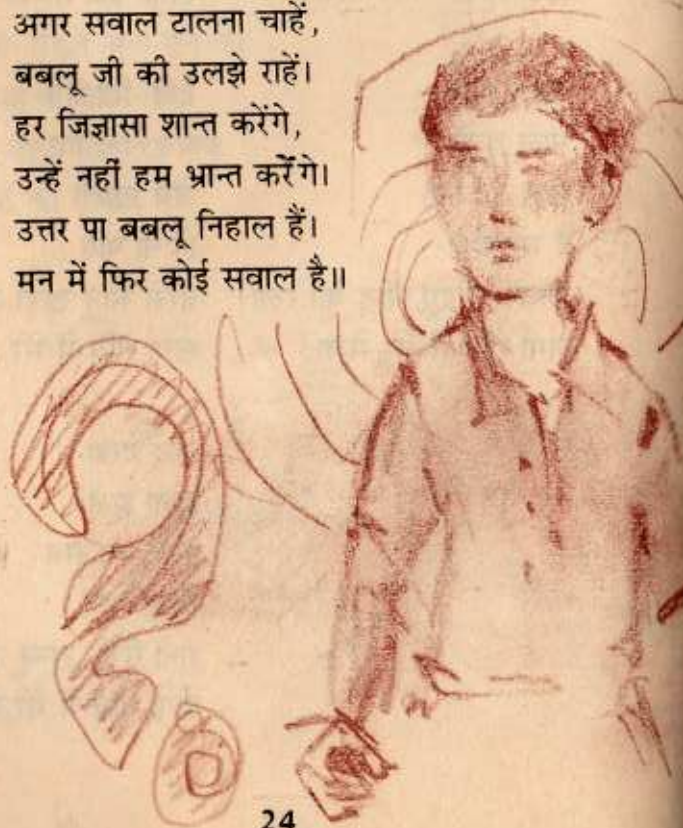 अगर सवाल टालना चाहें,
बबलू जी की उलझे राहें।
हर जिज्ञासा शान्त करेंगे,
उन्हें नहीं हम भ्रान्त करेंगे।
उत्तर पा बबलू निहाल हैं।
मन में फिर कोई सवाल है॥
24